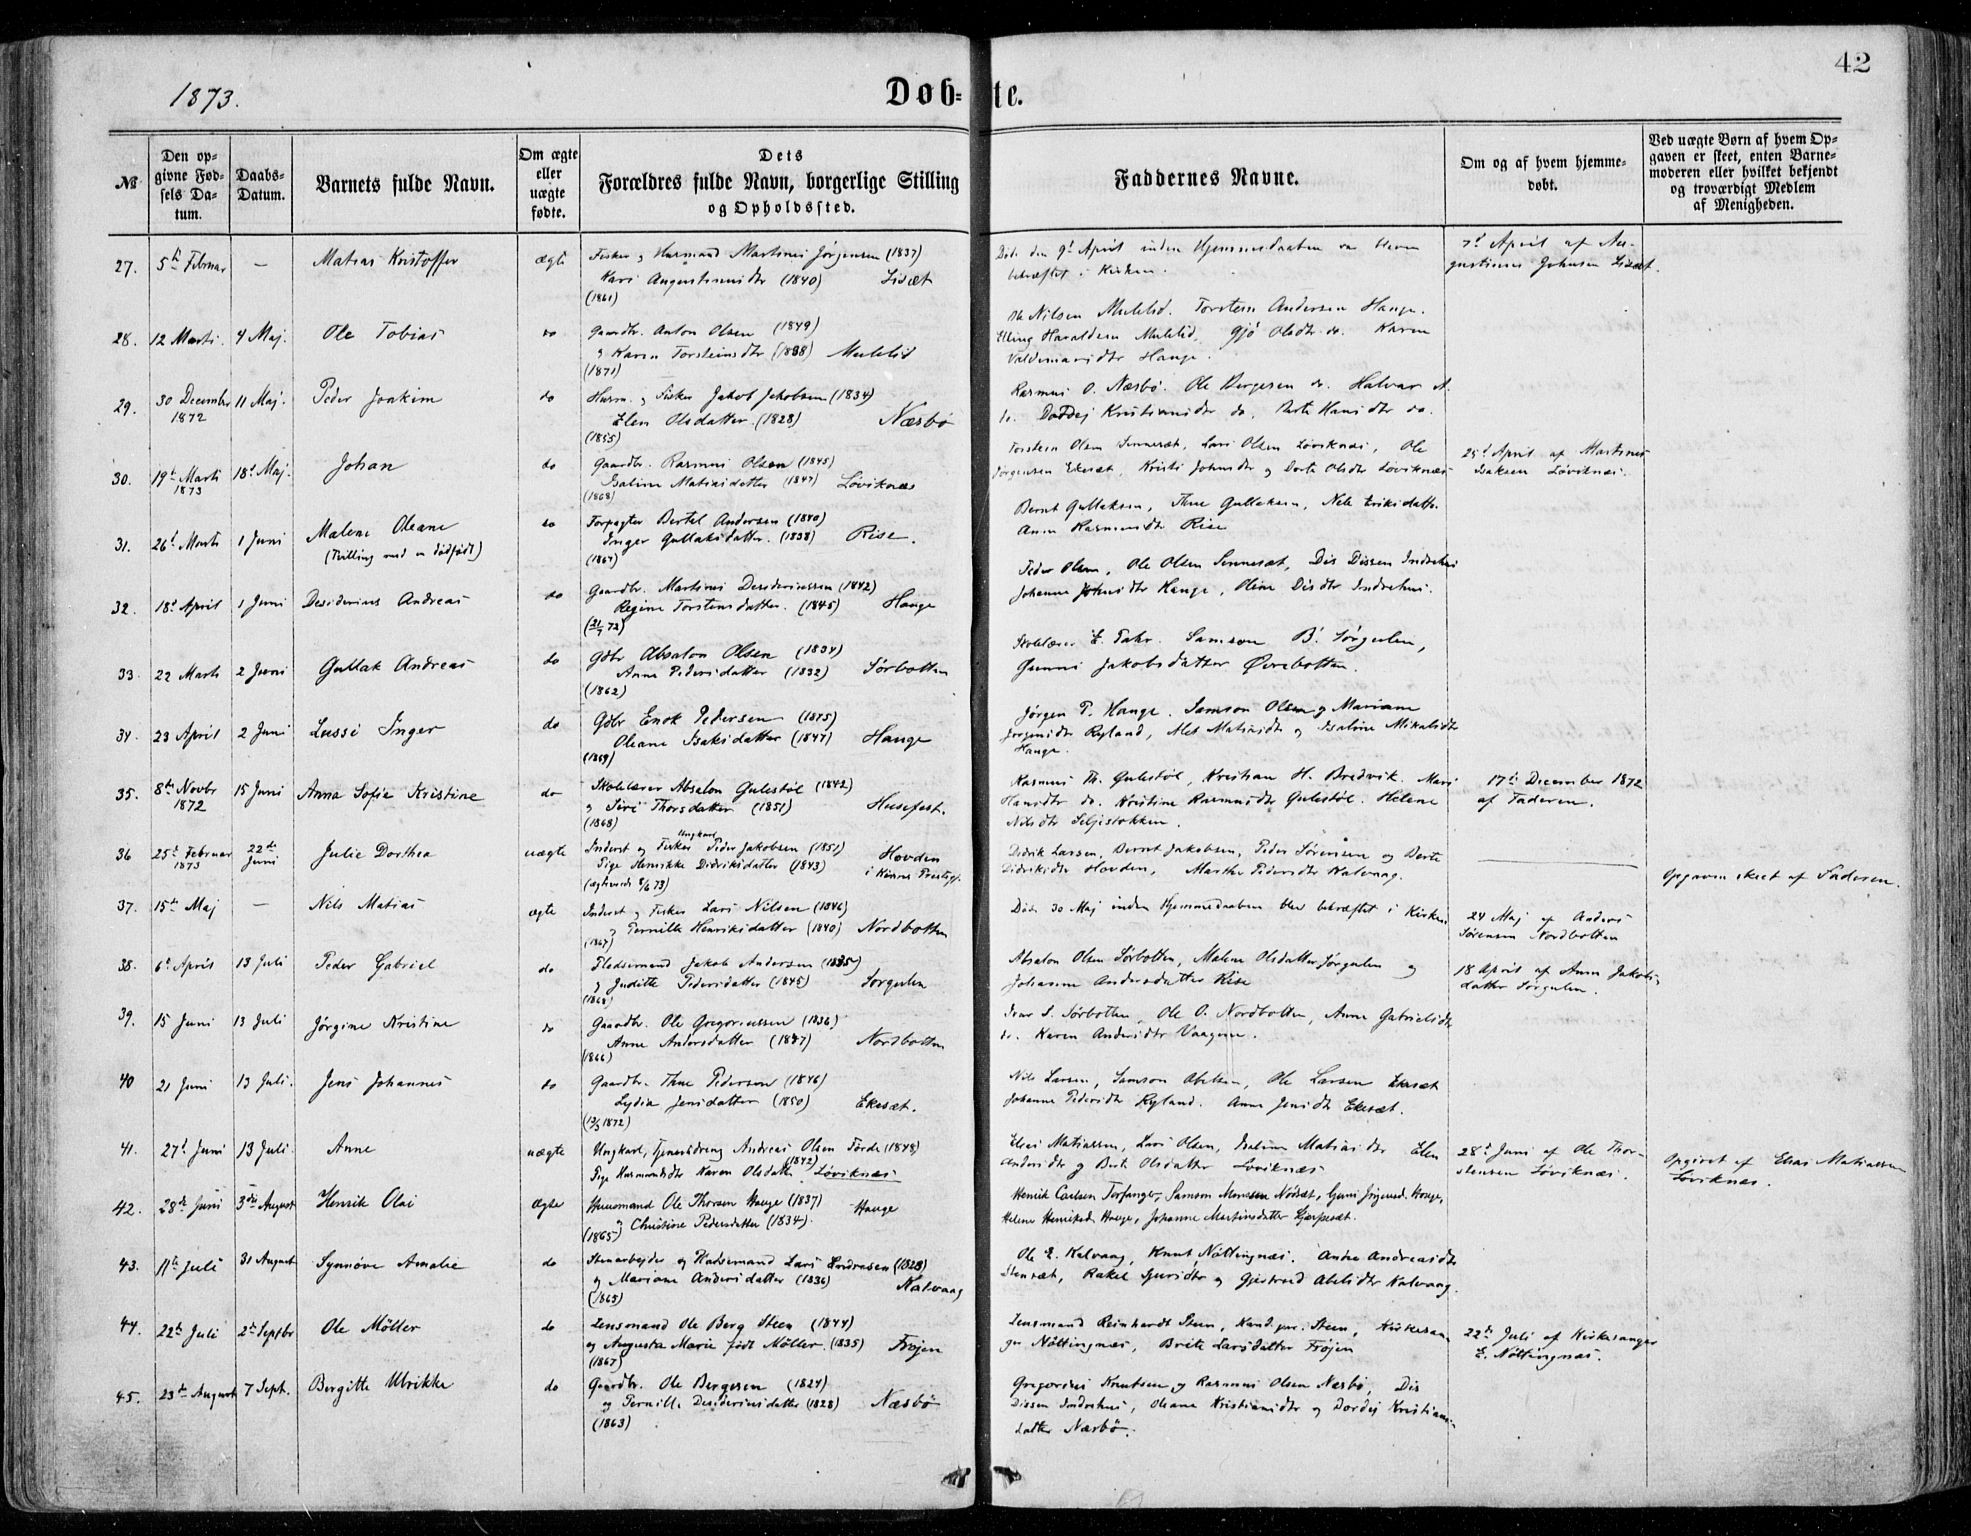 42
1873.
Døb= te.
№
Den op=
givne Fød=
sels Da=
tum.
Daabs=
Datum.
Barnets fulde Navn.
Om ægte
eller
uægte
fødte.
Dets
Forældres fulde Navn, borgerlige Stilling
og Opholdssted.
Faddernes Navne.
Om og af hvem hjemme=
døbt.
Ved uægte Børn af hvem Op=
gaven er skeet, enten Barne=
moderen eller hvilket bekjendt
og troværdigt Medlem
af Menigheden.
27. 5te Februar — Matias Kristoffer ægte Fisker og Husmand Martinus Jørgensen (1837)
Kari Augustinusdtr (1840)
(1861)
Død den 9de April inden Hjemmedaaben var bleven
bekræftet i Kirken.
7de April af Au-
gustinus Johnsen
28. 12 Marts. 4 Maj. Ole Tobias do Gaardbr. Anton Olsen (1849)
og Karen Torsteinsdtr (1838) Muletid
(1871)
Nilsen Muletid. Torstein Andersen Hauge.
Elling Haraldsen Muletid, Gjö Olsdtr do. Karen
Valdemarsdtr Hauge.
29. 30 December 11 Maj. Peder Joakim do Husm. og Fisker Jakob Jakobsen (1834)
1872
Elen Olsdatter (1828) Næsbø
(1855)
Rasmus O. Næsbø. Ole Bergesen do. Halvar A.
do. Dordej Kristiansdtr do, Berte Hansdtr do.
30. 19de Marts 18de Maj. Johan do Gaardbr. Rasmus Olsen (1845)
1873
Isaline Matiasdatter (1847) Løviknæs
(1868)
Torstein Olsen Sennesæt, Lars Olsen Løviknæs, Ole
Jørgensen Ekesæt, Kristi Johnsdtr og Dorte Olsdtr Løviknæs
25de April af Martinus
Isaksen Løviknæs.
31. 26de Marts 1 Juni Malene Oleane do Forpagter Bertel Andersen (1840)
(Tvilling med en dødfødt)
Inger Gullaksdatter. (1838) Rise.
(1867)
Bernt Gullaksen, Thue Gullaksen, Nele Eriksdatter
Anne Rasmusdtr Rise
32. 18de April 1 Juni Desiderius Andreas do Gaardbr. Martinus Desideriussen (1842)
Regine Torstensdatter. (1845) Hauge
Peder Olsen, Ole Olsen Sennesæt, Dis Dissen Indrehus
Johanne Johnsdtr Hauge, Oline Disdtr Indrehus.
33. 22 Marts 2 Juni Gullak Andreas do Gdbr Absalon Olsen (1834)
Anne Pedersdatter (1832) Sørbotten
(1862)
Skolelærer E. Fahr. Samson B. Sørgulen,
Gunni Jakobsdatter Øvrebotten.
34. 23 April 2 Juni Lussi Inger do Gdbr Enok Pedersen (1845)
Oleane Isaksdatter (1847) Hauge
(1869)
Jørgen P. Hauge. Samson Olsen og Mariane
Jørgensdtr Ryland, Alet Matiasdtr og Isaline Mikalsdtr
Hauge.
35. 8de Novbr 15 Juni Anna Sofie Kristine do Skolelærer Absalon Gulestøl (1842)
1872
og Siri Thorsdatter (1851) Husefest.
(1868)
Rasmus Th. Gulestøl, Kristian H. Bredvik. Mari
Hansdtr do. Kristine Rasmusdtr Gulestøl. Helene
Nilsdtr Seljestokken.
17de December 1872
af Faderen.
36 25de Februar 22de Juni Julie Dorthea uægte Inderst og Fisker Ungkarl Peder Jakobsen (1851)
1873
Pige Henrikke Didriksdatter (1843) Hovden
i Kinns Prestegj.
Didrik Larsen, Bernt Jakobsen, Peder Sørensen og Berte
Didriksdtr Hovden, Marthe Pedersdtr Kalvaag.
Opgaven skeet af Faderen.
37. 15de Maj — Nils Matias ægte Inderst og Fisker Lars Nilsen (1846)
og Pernille Henriksdatter (1840) Nordbotten
(1867)
Død 30 Maj inden Hjemmedaaben blev bekræftet i Kirken
24 Maj af Anders
Sørensen Nordbotten
38. 6te April 13 Juli Peder Gabriel do Pladsemand Jakob Andersen (1835)
og Juditte Pedersdatter (1845) Sørgulen
(1868)
Absalon Olsen Sørbotten, Malene Olsdatter Sørgulen og
Johanne Andersdatter Rise
18 April af Anne Jakobs-
datter Sørgulen.
39. 15 Juni 13 Juli Jørgine Kristine do Gaardbr. Ole Gregoriussen (1836)
Anne Andersdatter (1847) Nordbotten
(1866)
Ivar S. Sørbotten, Ole O. Nordbotten, Anne Gabrielsdtr
do. Karen Andersdtr Vaagene.
40 21 Juni 13 Juli. Jens Johannes do Gaardbr. Thue Pedersen (1846)
Lydia Jensdatter (1850) Ekesæt.
Nils Larsen, Samson Abelsen, Ole Larsen Ekesæt
Johanne Pedersdtr Ryland. Anne Jensdtr Ekesæt.
41. 27de Juni 13 Juli. Anne uægte Ungkarl, Tjenestdreng Andreas Olsen Førde (1848)
Pige Husmandsdtr Karen Olsdatter (1842) Løviknæs
Elias Matiassen, Lars Olsen, Isaline Matiasdtr Elen
Andersdtr og Berte Olsdatter Løviknæs
28de Juni af Ole Thor-
stensen Løviknæs.
Opgivet af Elias Matiassen
Løviknæs.
42. 28de Juni 3die August Henrik Olai Ægte Huusmand Ole Thorsen Hauge (1837)
og Christine Pedersdatter (1834). Hauge
(1865)
Henrik Carlsen Torfanger, Samson Monssen Nødsæt, Gjeni Jørgensd. Hauge,
Helene Henriksd. Hauge, Johanne Martinsdatter
43. 11te Juli 31 August Synnøve Amalie do Stenarbejder og Pladsemand Lars Endresen (1828)
og Mariane Andersdatter (1836) Kalvaag
(1865)
Ole E. Kalvaag, Knut Nøttingnæs. Andrea Andreasdtr
Stensæt, Rakel Sjursdtr og Gjertrud Abelsdtr Kalvaag.
44. 22de Juli 2de Septbr Ole Möller do Lensmand Ole Berg Steen (1844)
og Augusta Marie født Møller (1835) Frøjen
(1867)
Lensmand Reinhardt Steen, Kand. jur. Steen, Kirkesan-
ger Nøttingnæs, Brite Larsdatter Frøjen
22de Juli af Kirkesanger
E. Nøttingnæs.
45. 23de August 7 Sept. Bergitte Ulrikke do Gaardbr. Ole Bergesen (1824)
og Pernille Desideriusdatter (1828) Næsbø
(1863)
Gregorius Knutsen og Rasmus Olsen Næsbø, Dis
Dissen Indrehus, Oleane Kristiansdtr og Dordej Kristians-
datter Næsbø.